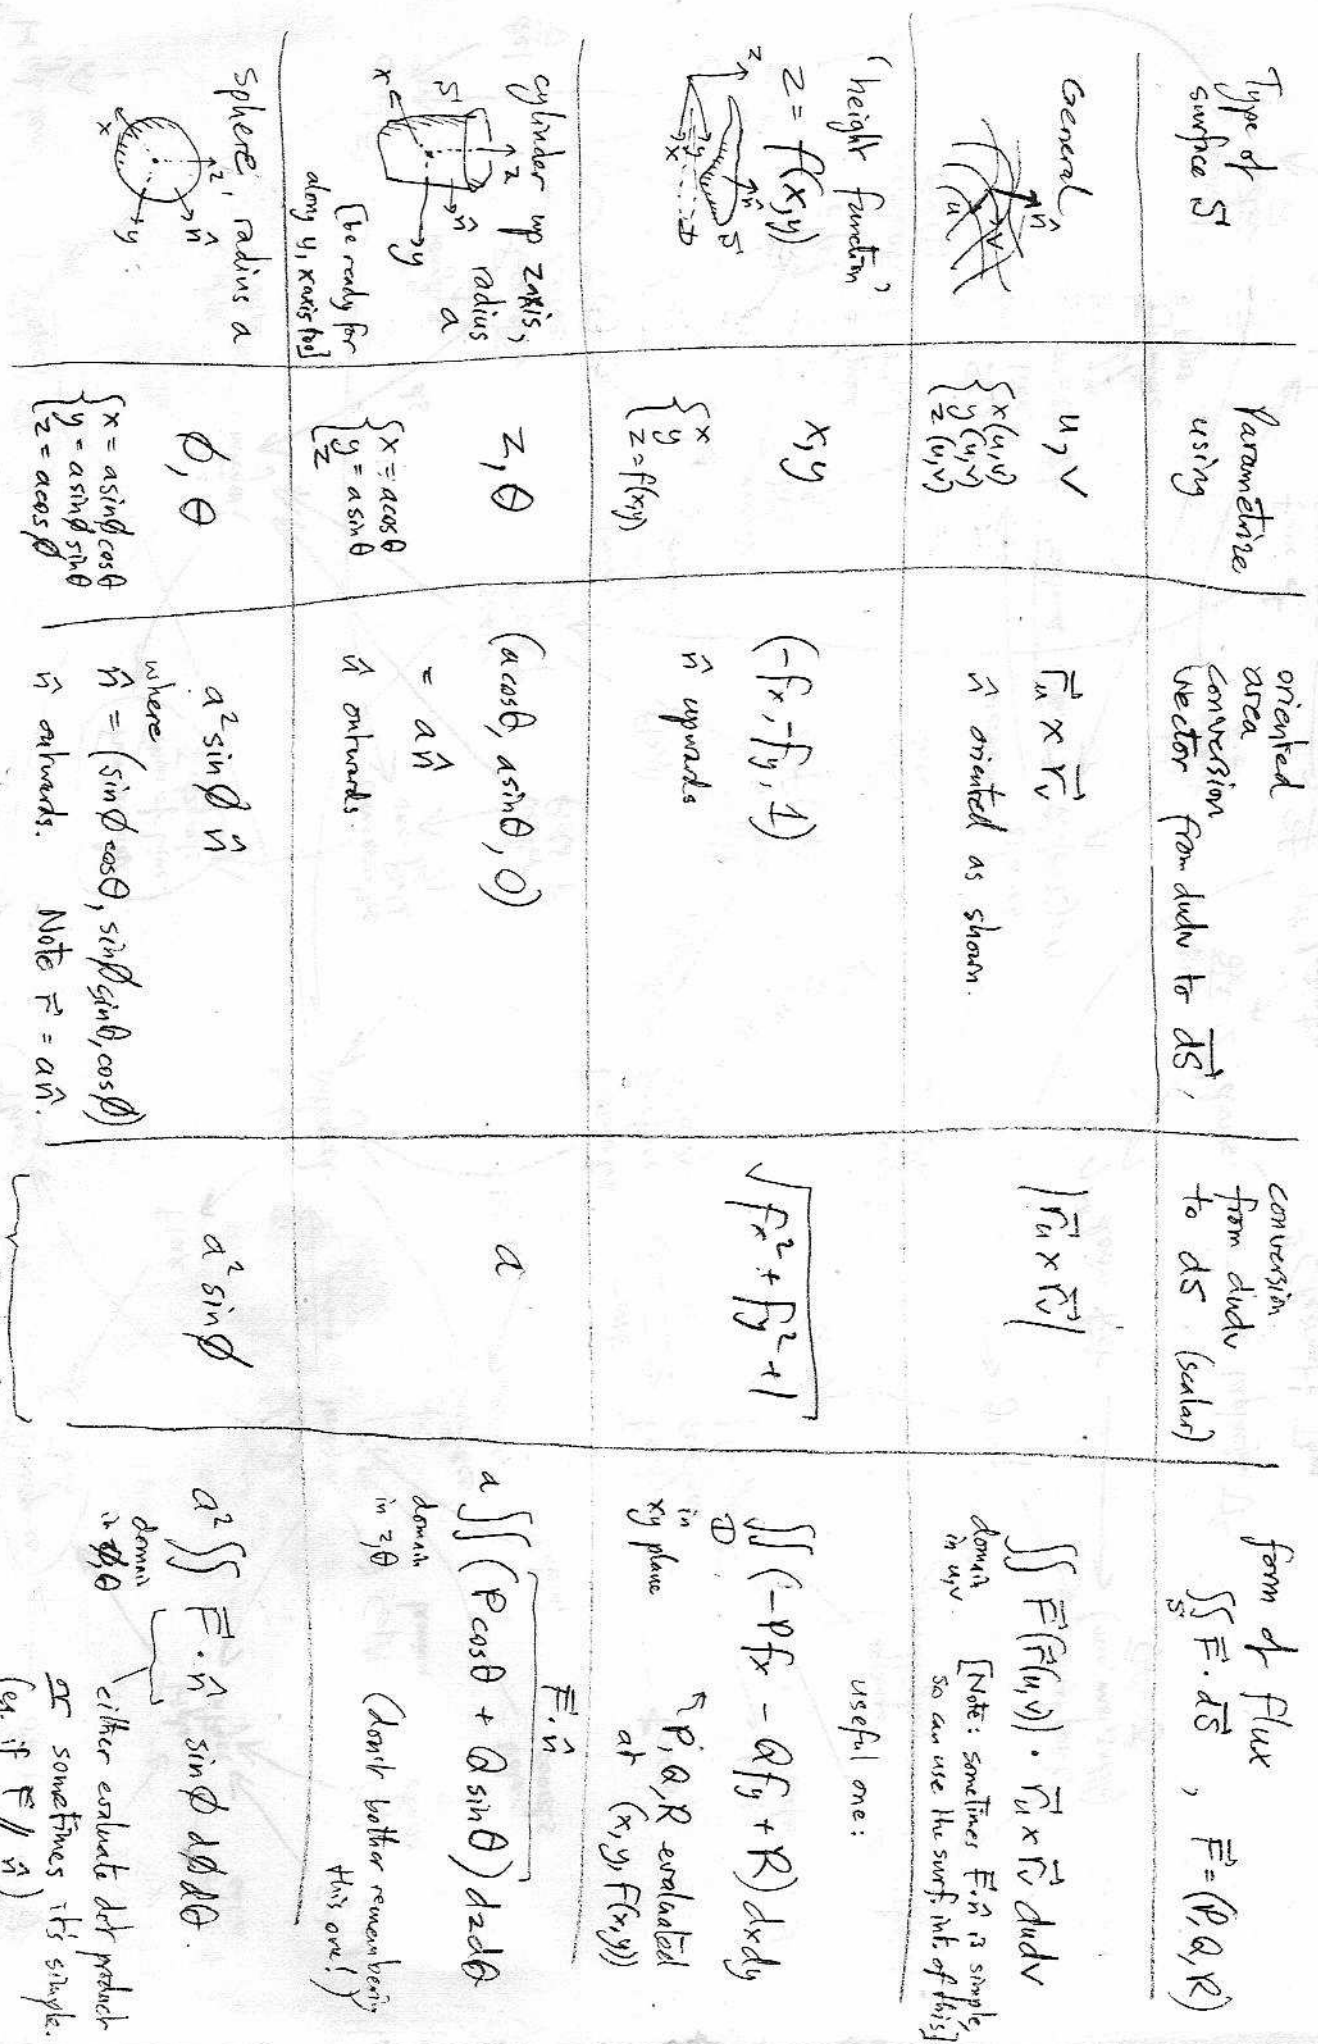 Type of surface S
Parametrize using
oriented area conversion vector from dudv to dS⃗,
conversion from dudv to dS (scalar)
form of flux ∬_S F⃗·dS⃗ , F⃗=(P,Q,R)
General
n̂
u
v
u, v
{x(u,v)
y(u,v)
z(u,v)
r⃗u x r⃗v
n̂ oriented as shown.
|r⃗u x r⃗v|
∬ F⃗(r⃗(u,v)) · r⃗u x r⃗v dudv
domain in u,v
[Note: sometimes F⃗·n̂ is simple,
so can use the surf. int. of this]
"height function"
z = f(x,y)
z
n̂
S
y
x
D
x,y
{x
y
z=f(x,y)
(-fx, -fy, 1)
n̂ upwards
√fx² + fy² + 1
useful one:
∬_D (-Pfx - Qfy + R) dxdy
in xy plane
P,Q,R evaluated
at (x,y,f(x,y))
cylinder up z axis,
radius a
z
S
n̂
y
x
[be ready for
along y, x axis too]
z, θ
{x = acosθ
y = asinθ
z
(acosθ, asinθ, 0)
= an̂
n̂ outwards.
a
F⃗·n̂
a∬ (Pcosθ + Qsinθ) dzdθ
domain in z,θ
(don't bother remembering
this one!)
sphere, radius a
z
n̂
y
x
φ, θ
{x = asinφcosθ
y = asinφsinθ
z = acosφ
a² sinφ n̂
where
n̂ = (sinφcosθ, sinφsinθ, cosφ)
n̂ outwards. Note r⃗ = an̂.
a² sinφ
a²∬ F⃗·n̂ sinφ dφdθ.
domain in φ,θ
either evaluate dot product
or sometimes it's simple.
(eg. if F⃗ // n̂)